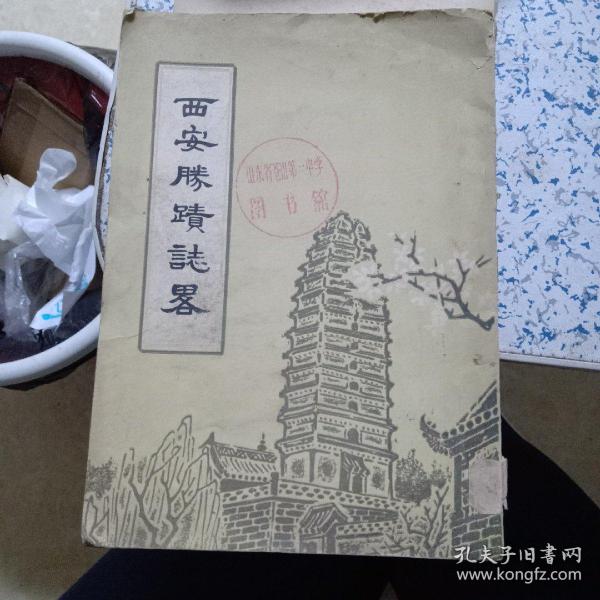 西安勝蹟誌畧
山东省
第一中学
图书舘
孔夫子旧書网
www.kongfz.com